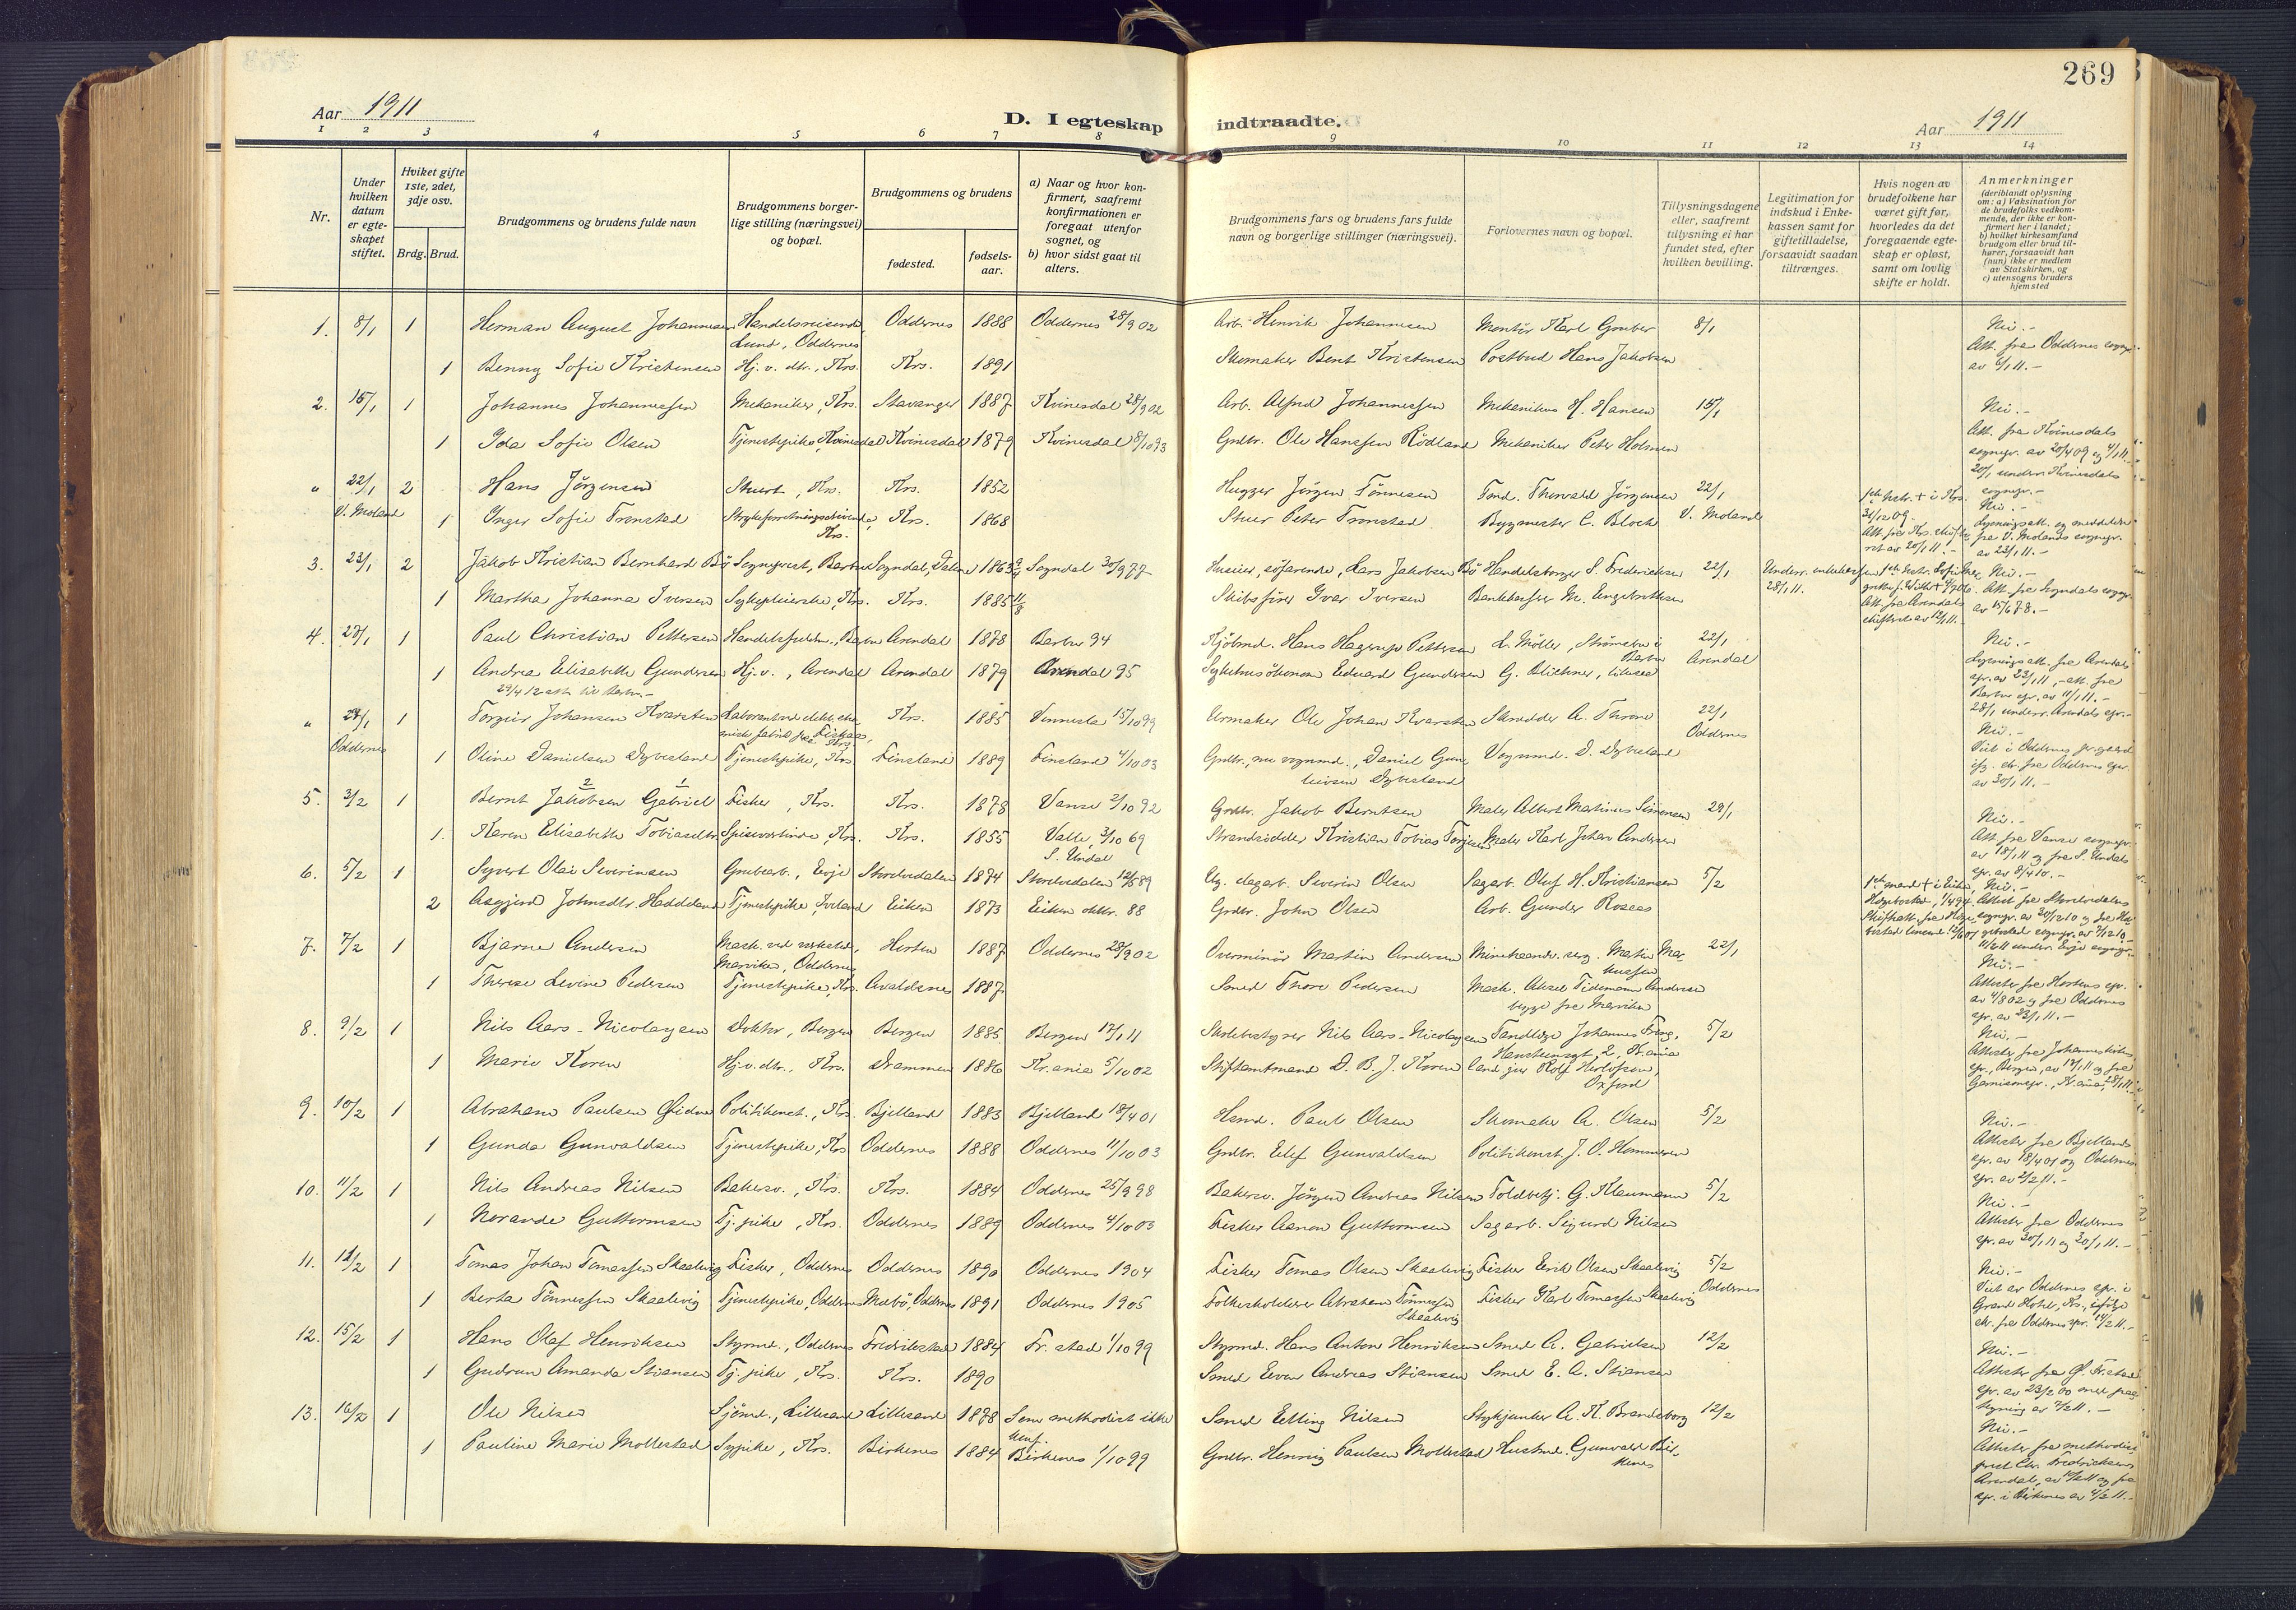 269
Aar 1911
D. I egteskap indtraadte.
Aar 1911
1 2 3 4 5 6 7 8 9 10 11 12 13 14
Nr.
Under hvilken datum er egteskapet stiftet.
Hviket gifte 1ste, 2det, 3dje osv.
Brdg. Brud.
Brudgommens og brudens fulde navn
Brudgommens borgerlige stilling (næringsvei) og bopæl.
Brudgommens og brudens
fødested.
fødselsaar.
a) Naar og hvor konfirmert, saafremt konfirmationen er foregaat utenfor sognet, og
b) hvor sidst gaat til alters.
Brudgommens fars og brudens fars fulde navn og borgerlige stillinger (næringsvei).
Forlovernes navn og bopæl.
Tillysningsdagene eller, saafremt tillysning ei har fundet sted, efter hvilken bevilling.
Legitimation for indskud i Enkekassen samt for giftetilladelse, forsaavidt saadan tiltrænges.
Hvis nogen av brudefolkene har været gift før, hvorledes da det foregaaende egteskap er opløst, samt om lovlig skifte er holdt.
Anmerkninger (deriblandt oplysning om: a) Vaksination for de brudefolks vedkommende, der ikke er konfirmert her i landet; b) hvilket kirkesamfund brudgom eller brud tilhører, forsaavidt han (hun) ikke er medlem av Statskirken, og c) utensogns bruders hjemsted
1. 8/1 1 Herman August Johannesen Handelsreisende Lund, Oddernes Oddernes 1888 Oddernes 28/9 02 Arb. Henrik Johannesen Montør Karl Gruber 8/1 Nei.- Att. fra Oddernes sognepr. av 6/1 11.-
1 Benny Sofie Kristensen Hj. v. dtr., Krs. Krs. 1891 Skomaker Bent Kristensen Postbud Hans Jakobsen
2. 15/1 1 Johannes Johannessen Mekaniker, Krs. Stavanger 1887 Kvinesdal 28/9 02 Arb. Alfred Johannessen Mekanikus H. Hansen 15/1 Nei.-
1 Ida Sofie Olsen Tjenestepike, Kvinesdal Kvinesdal 1879 Kvinesdal 8/10 93 Grdbr. Ole Hanssen Rödland Mekaniker Peter Holmen Att. fra Kvinesdals sognepr. av 20/4 09 og 4/1 11.- 20/1 underr. Kvinesdals sognepr.-
" 22/1 V. Moland 2 Hans Jörgensen Stuert, Krs. Krs. 1852 Hugger Jörgen Tönnesen Fond. Thorvald Jörgensen 22/1 V. Moland 1ste hstr. + i Krs. 31/12 09. Att. fra Krs. skifteret av 20/1 11.- Nei.-
1 Inger Sofie Tronstad Strykeforretningsdrivende, Krs. Krs. 1868 Stuer Peter Tronstad Bygmester C. Bloch Lysningsatt. og meddelelse fra V. Molands sognepr. av 23/1 11.-
3. 23/1 2 Jakob Kristian Bernhard Bö Sogneprest, Barbu Sogndal, Dalene 1863 Sogndal 30/9 77 Huseier, söfarende, Lars Jakobsen Bö Handelsborger S. Frederiksen 22/1 Underr. enkekassen 28/1 11. Nei.- Att. fra Sogndals sognepr. av 15/6 78.-
1 Martha Johanna Iversen Sykepleierske, Krs. Krs. 1885 11/8 Skibsförer Ivar Iversen Bankkasser M. Engebrettsen Att. fra Arendals skifteret av 12/1 11.
4. 23/1 1 Paul Christian Pettersen Handelsfuldm., Barbu Arendal 1878 Barbu 94 Kjöbmd. Hans Hagerup Pettersen L. Möller, Strömsbu i Barbu 22/1 Arendal Nei.-
1 Andrea Elisabeth Gundersen Hj. v., Arendal Arendal 1879 Arendal 95 Sykehusökonom Eduard Gundersen G. Blichner, Lillesand Lysningsatt. fra Arendals spr. av 23/1 11, - att. fra Barbu spr. av 11/1 11.- 28/1 underr. Arendals spr.-
29/4 12 att. til Barbu.-
" 24/1 Oddernes 1 Torgeir Johansen Kvarsten Krs. 1885 Vennesla 15/10 99 Urmaker Ole Johan Kvarsten Skrædder A. Throne 22/1 Oddernes Nei.-
1 Oline Danielsen Dybesland Tjenestepike, Krs Finsland 1889 Finsland 4/10 03 Grdbr., nu vognmd., Daniel Gunleivsen Dybesland Vognmd. D. Dybesland Viet i Oddernes pr.gaard ifg. ek. fra Oddernes spr. av 30/1 11.
5. 3/2 1 Bernt Jakobsen Gabriel Fisker, Krs. Krs. 1878 Vanse 2/10 92 Grdbr. Jakob Berntsen Maler Albert Matinus Simonsen 29/1 Nei.-
1 Karen Elisabeth Tobiasdtr. Spisevertinde, Krs. Krs. 1855 Valle, S. Undal 3/10 69 Strandsidder Kristian Tobias Torjesen Maler Karl Johan Andersen Att. fra Vanse sognepr. av 18/1 11 og fra S. Undals spr. av 8/4 10.-
6. 5/2 1 Syvert Olai Severinsen Grubearb., Evje Storelvedalen 1874 Storelvedalen 12/5 89 Elg. dagarb. Severin Olsen Sagarb. Oluf H. Kristiansen 5/2 Nei.-
2 Asgjerd Johnsdtr. Haddeland Tjenestepike, Iveland Eiken 1873 Eiken okbr. 88 Grdbr. John Olsen Arb. Gunder Rosaas Attest fra Storelvedalens sognepr. av 30/12 10 og fra Hægebostad sognepr. av 7/12 10 11/2 11 underr. Evje sognepr.-
7. 7/2 1 Bjarne Andersen Mask. ved verkstedet, Marviken, Oddernes Horten 1887 Oddernes 28/9 02 Overminör Martin Andersen Minekaandv. serg. Matin Markussen 22/1 Nei.-
1 Therese Levine Pedersen Tjenestepike, Krs. Avaldsnes 1887 Smed Thore Pedersen Mask. Aksel Tidemann Andersen begge fra Marviken Attester fra Hortens spr. av 4/8 02 og fra Oddernes spr. av 23/1 11.-
8. 9/2 1 Nils Aars-Nicolaysen Doktor, Bergen Bergen 1885 Bergen 17/1 11 Skolebestyrer Nils Aars-Nicolaysen Tandlæge Johannes Fong, Hansteensgt. 2, Kr.ania 5/2 Nei.-
1 Marie Koren Hj. v. dtr., Krs. Drammen 1886 Kr.ania 5/10 02 Stiftamtmand D. B. J. Koren cand. jur Rolf Herlofson, Oxford Attester fra Johanneskirkens spr., Bergen, av 17/1 11 og fra Garnisonspr., Kr.ania, 28/1 11.-
9. 10/2 1 Abraham Paulsen Politikonst., Krs. Bjelland 1883 Bjelland 18/4 01 Hsmd. Paul Olsen Skomaker A. Olsen 5/2 Nei.-
1 Gunda Gunvaldsen Tjenestepike, Krs Oddernes 1888 Oddernes 11/10 03 Grdbr. Elef Gunvaldsen Politikonst. J. O. Hommeren Attester fra Bjellands spr. av 18/4 01 og Oddernes spr. av 2/2 11.-
10. 11/2 1 Nils Andreas Nilsen Bakersv., Krs. Krs. 1884 Oddernes 25/9 98 Bakersv. Jörgen Andreas Nilsen Toldbetj. G. Klaumann 5/2 Nei.-
1 Norande Guttormsen Tj. pike, Krs. Oddernes 1889 Oddernes 4/10 03 Fisker Aanon Guttormsen Sagarb. Sigurd Nilsen Attester fra Oddernes spr. av 30/1 11 og 30/1 11.-
11. 12/2 1 Tomas Johan Tomassen Skaalevig Fisker, Oddernes Oddernes 1890 Oddernes 1904 Fisker Tomas Olsen Skaalevig Fisker Eerik Olsen Skaalevig 5/2 Oddernes Nei.-
1 Berta Tönnessen Skaalevig Tjenestepike, Oddernes Mæbö, Oddernes 1891 Oddernes 1905 Folkeskolelærer Abraham Tönnessen Skaalevig Fisker Karl Tomassen Skaalevig Viet av Oddernes spr. i Grand Hotel, Krs., ifölge ek. fra Oddernes spr. 14/2 11.-
12. 15/2 1 Hans Olaf Henriksen Styrmd., Oddernes Fredrikstad 1884 Fr.stad 1/10 99 Styrmd. Hans Anton Henriksen Smed A. Gabrielsen 12/2 Nei.-
1 Gudrun Amanda Stiansen Tj. pike, Krs. Krs. 1890 Smed Even Andreas Stiansen Smed E. A. Stiansen Attester fra Ø. Fr.stad spr. av 23/2 00 med paategning av 7/2 11.-
13. 16/2 1 Ole Nilsen Sjömd., Lillesand Lillesand 1878 Som methodist ikke konf. Smed Elling Nilsen Stykjunker A. K. Brandsborg 12/2 Nei.-
1 Pauline Marie Mollestad Sypike, Krs. Birkenes 1884 Birkenes 1/10 99 Grdbr. Henrig Paulsen Mollestad Husmd. Gunvald Birkenes Attester fra methodistprest Chr. Fredriksen, Arendal, av 14/2 11 og fra spr. i Birkenes av 4/2 11.-